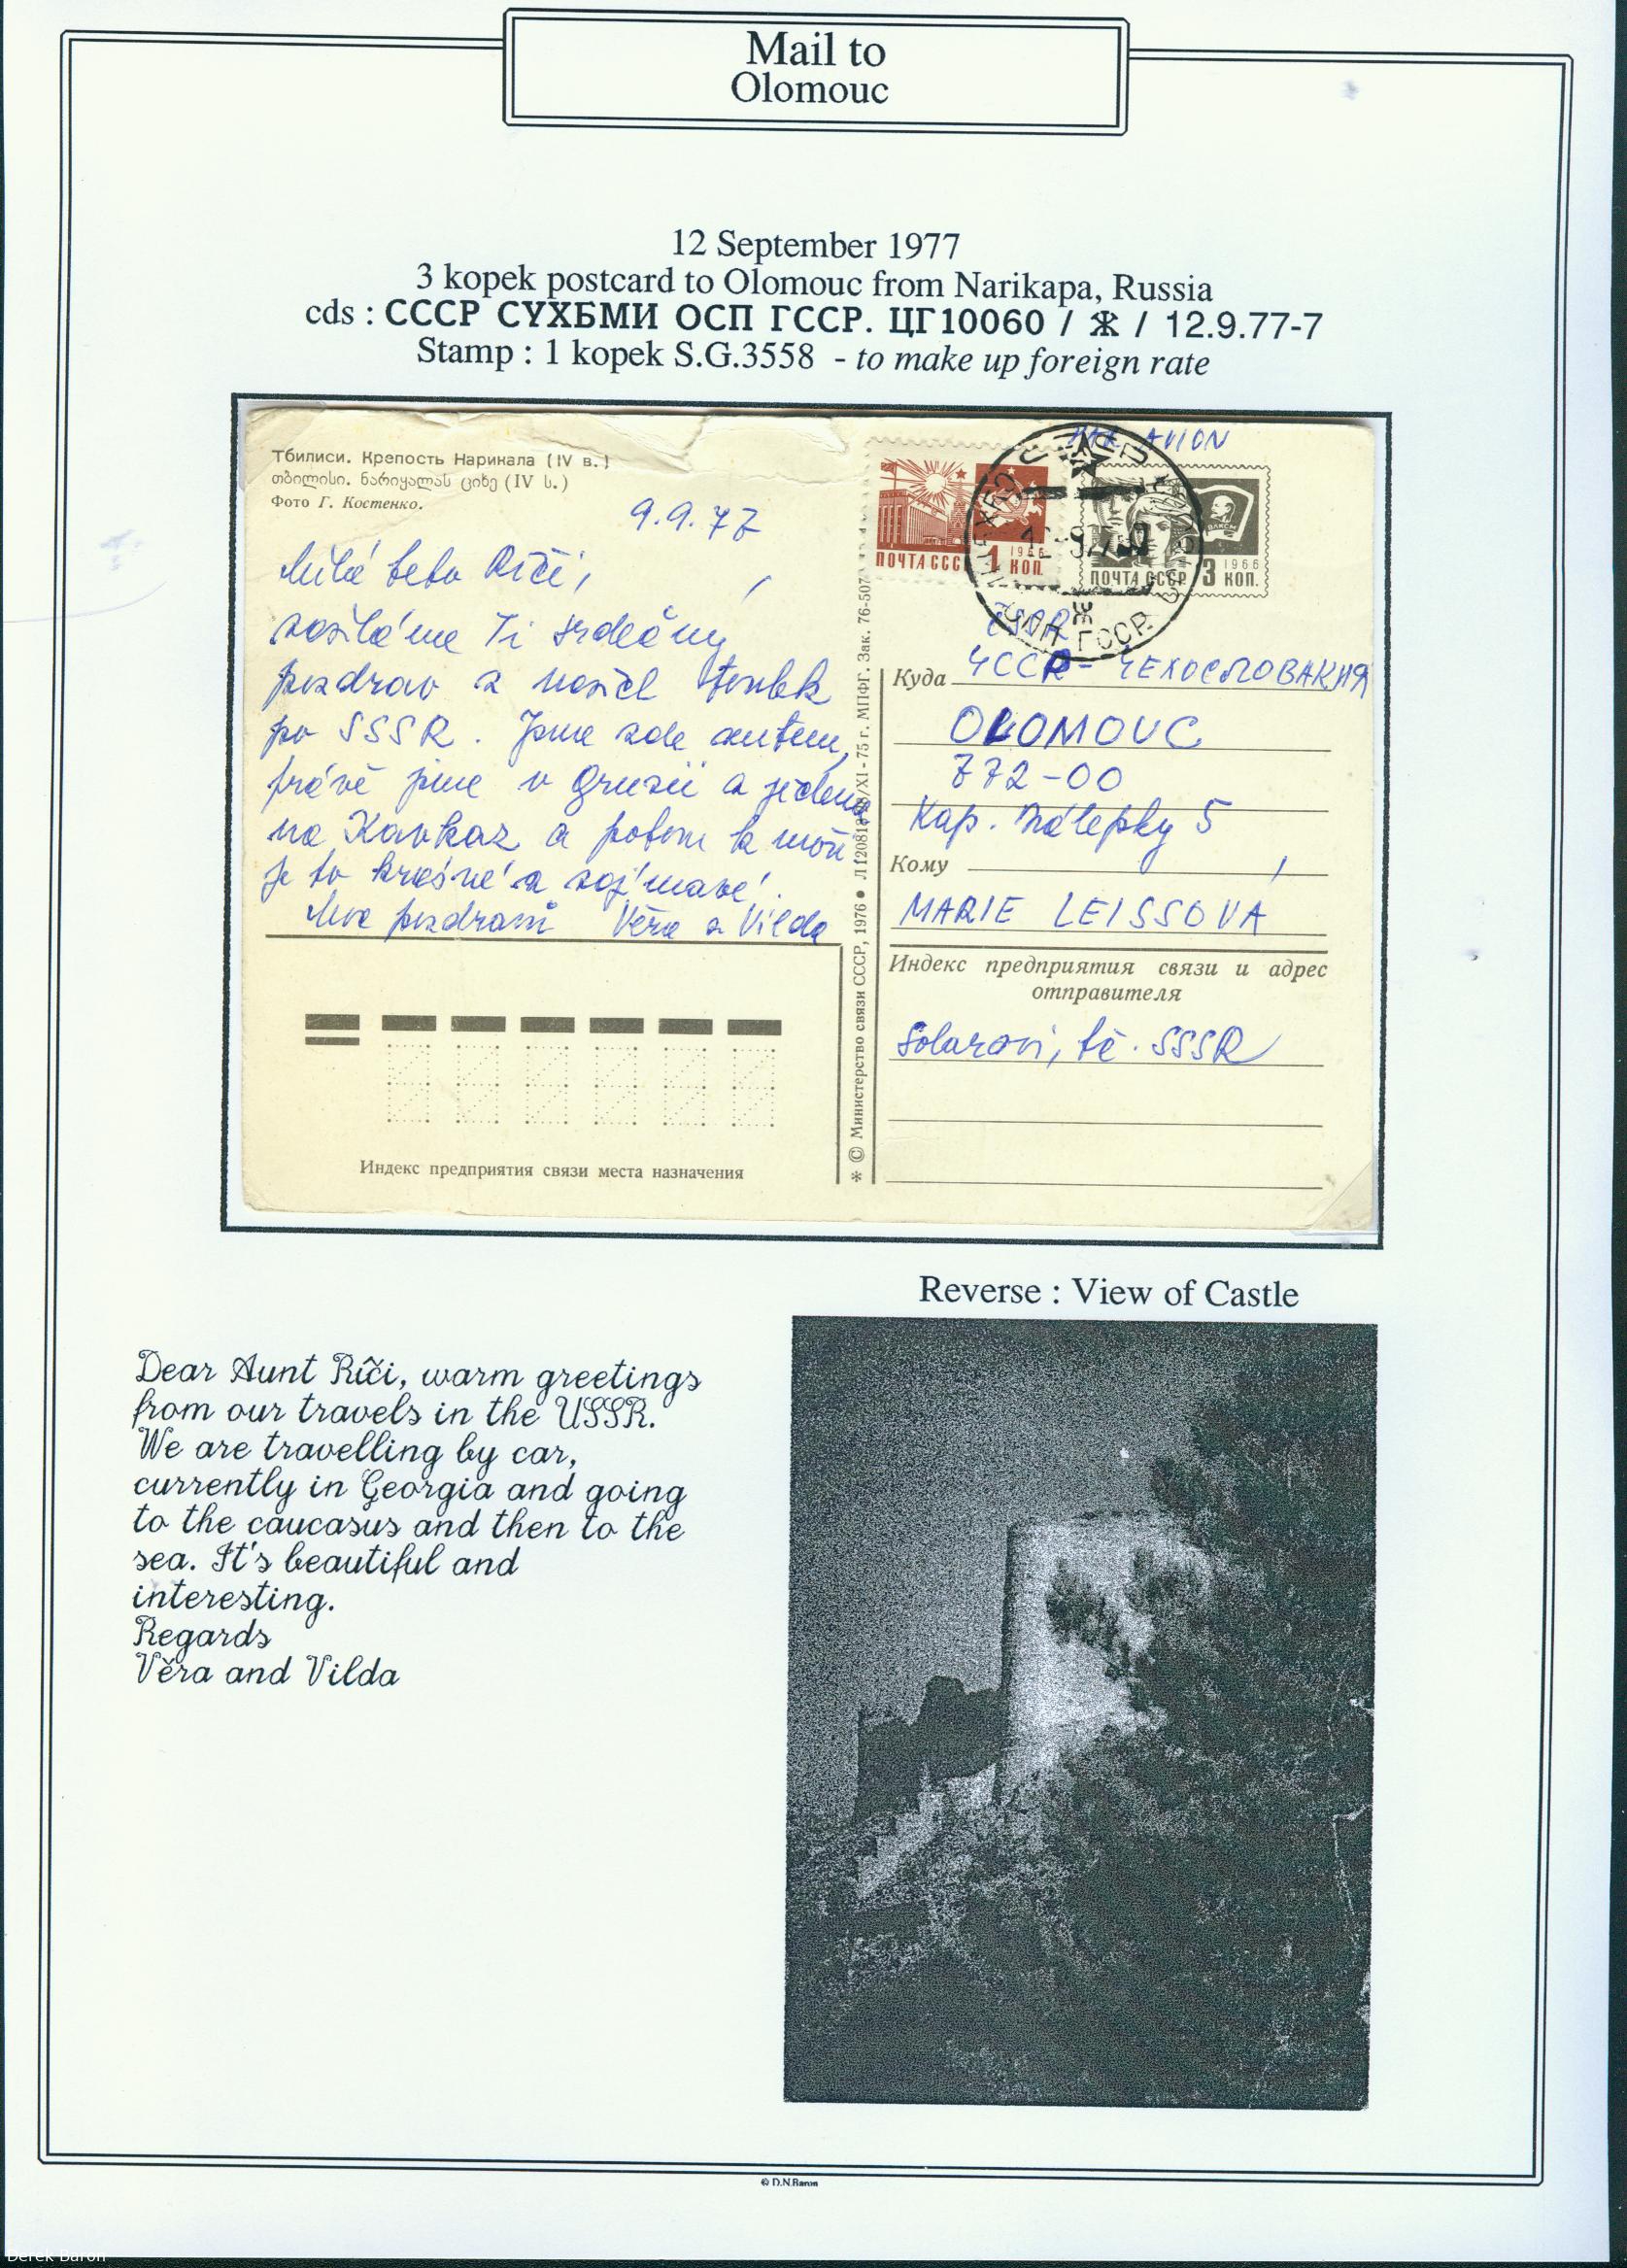 Mail to
Olomouc
12 September 1977
3 kopek postcard to Olomouc from Narikapa, Russia
cds : СССР СУХБМИ ОСП ГССР. ЦГ10060 / Ж / 12.9.77-7
Stamp : 1 kopek S.G.3558 - to make up foreign rate
Тбилиси. Крепость Нарикала (IV в.)
თბილისი. ნარიყალას ციხე (IV ს.)
Фото Г. Костенко.
9.9.77
Milá teto Ríči,
zasíláme Ti srdečný
pozdrav z našich toulek
po SSSR. Jsme zde autem,
právě jsme v Gruzii a jedeme
na Kavkaz a potom k moři
je to krásné a zajímavé.
Moc pozdravů Věra a Vilda
Индекс предприятия связи места назначения
* © Министерство связи СССР, 1976 ● 75 г. МПФГ. Зак. 76-507
PAR AVION
ПОЧТА СССР 1 КОП. 1966
ВЛКСМ
ПОЧТА СССР 3 КОП. 1966
ГССР
Ж
ČSSR
Куда ЧССР - ЧЕХОСЛОВАКИЯ
OLOMOUC
772-00
Kap. Nálepky 5
Кому
MARIE LEISSOVA
Индекс предприятия связи и адрес
отправителя
SSSR
Reverse : View of Castle
Dear Aunt Ríči, warm greetings
from our travels in the USSR.
We are travelling by car,
currently in Georgia and going
to the caucasus and then to the
sea. It's beautiful and
interesting.
Regards
Věra and Vilda
© D.N.Baron
Derek Baron